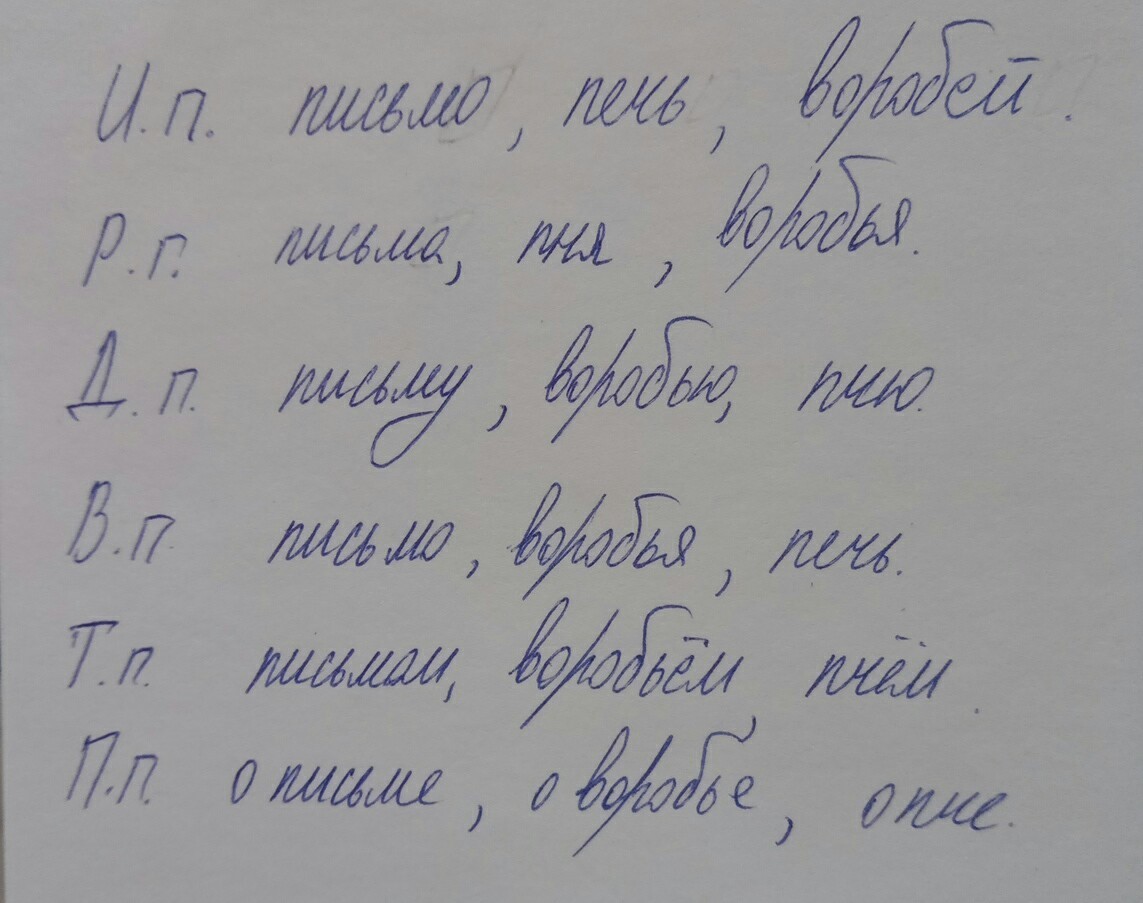 И.п. письмо, пень, воробей.
Р.п. письма, пня, воробья.
Д.п. письму, воробью, пню.
В.п. письмо, воробья, пень.
Т.п. письмом, воробьём, пнём.
П.п. о письме, о воробье, о пне.